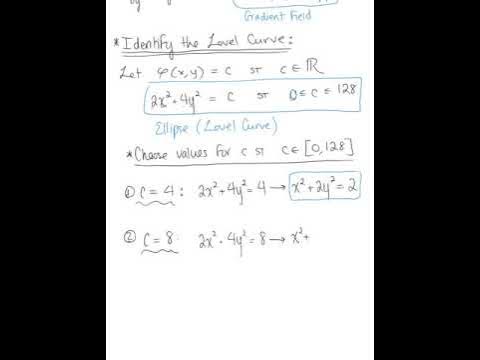 Gradient Field
*Identify the Level Curve:
Let φ(x,y) = c st c∈ℝ
2x²+4y² = c st 0≤c≤128
Ellipse (Level Curve)
*Choose values for c st c∈[0,128]
① c=4: 2x²+4y²=4→x²+2y²=2
② c=8 2x²·4y²=8→x²+